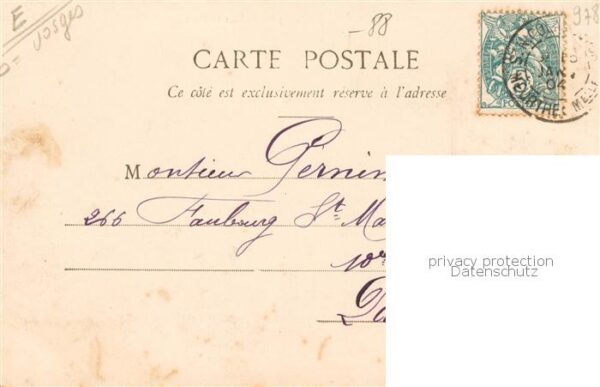 E
Vosges
-88
978
CARTE POSTALE
Ce côté est exclusivement réservé à l'adresse
Monsieur Pernin
266 Faubourg St Ma
10e
Pa
privacy protection
Datenschutz